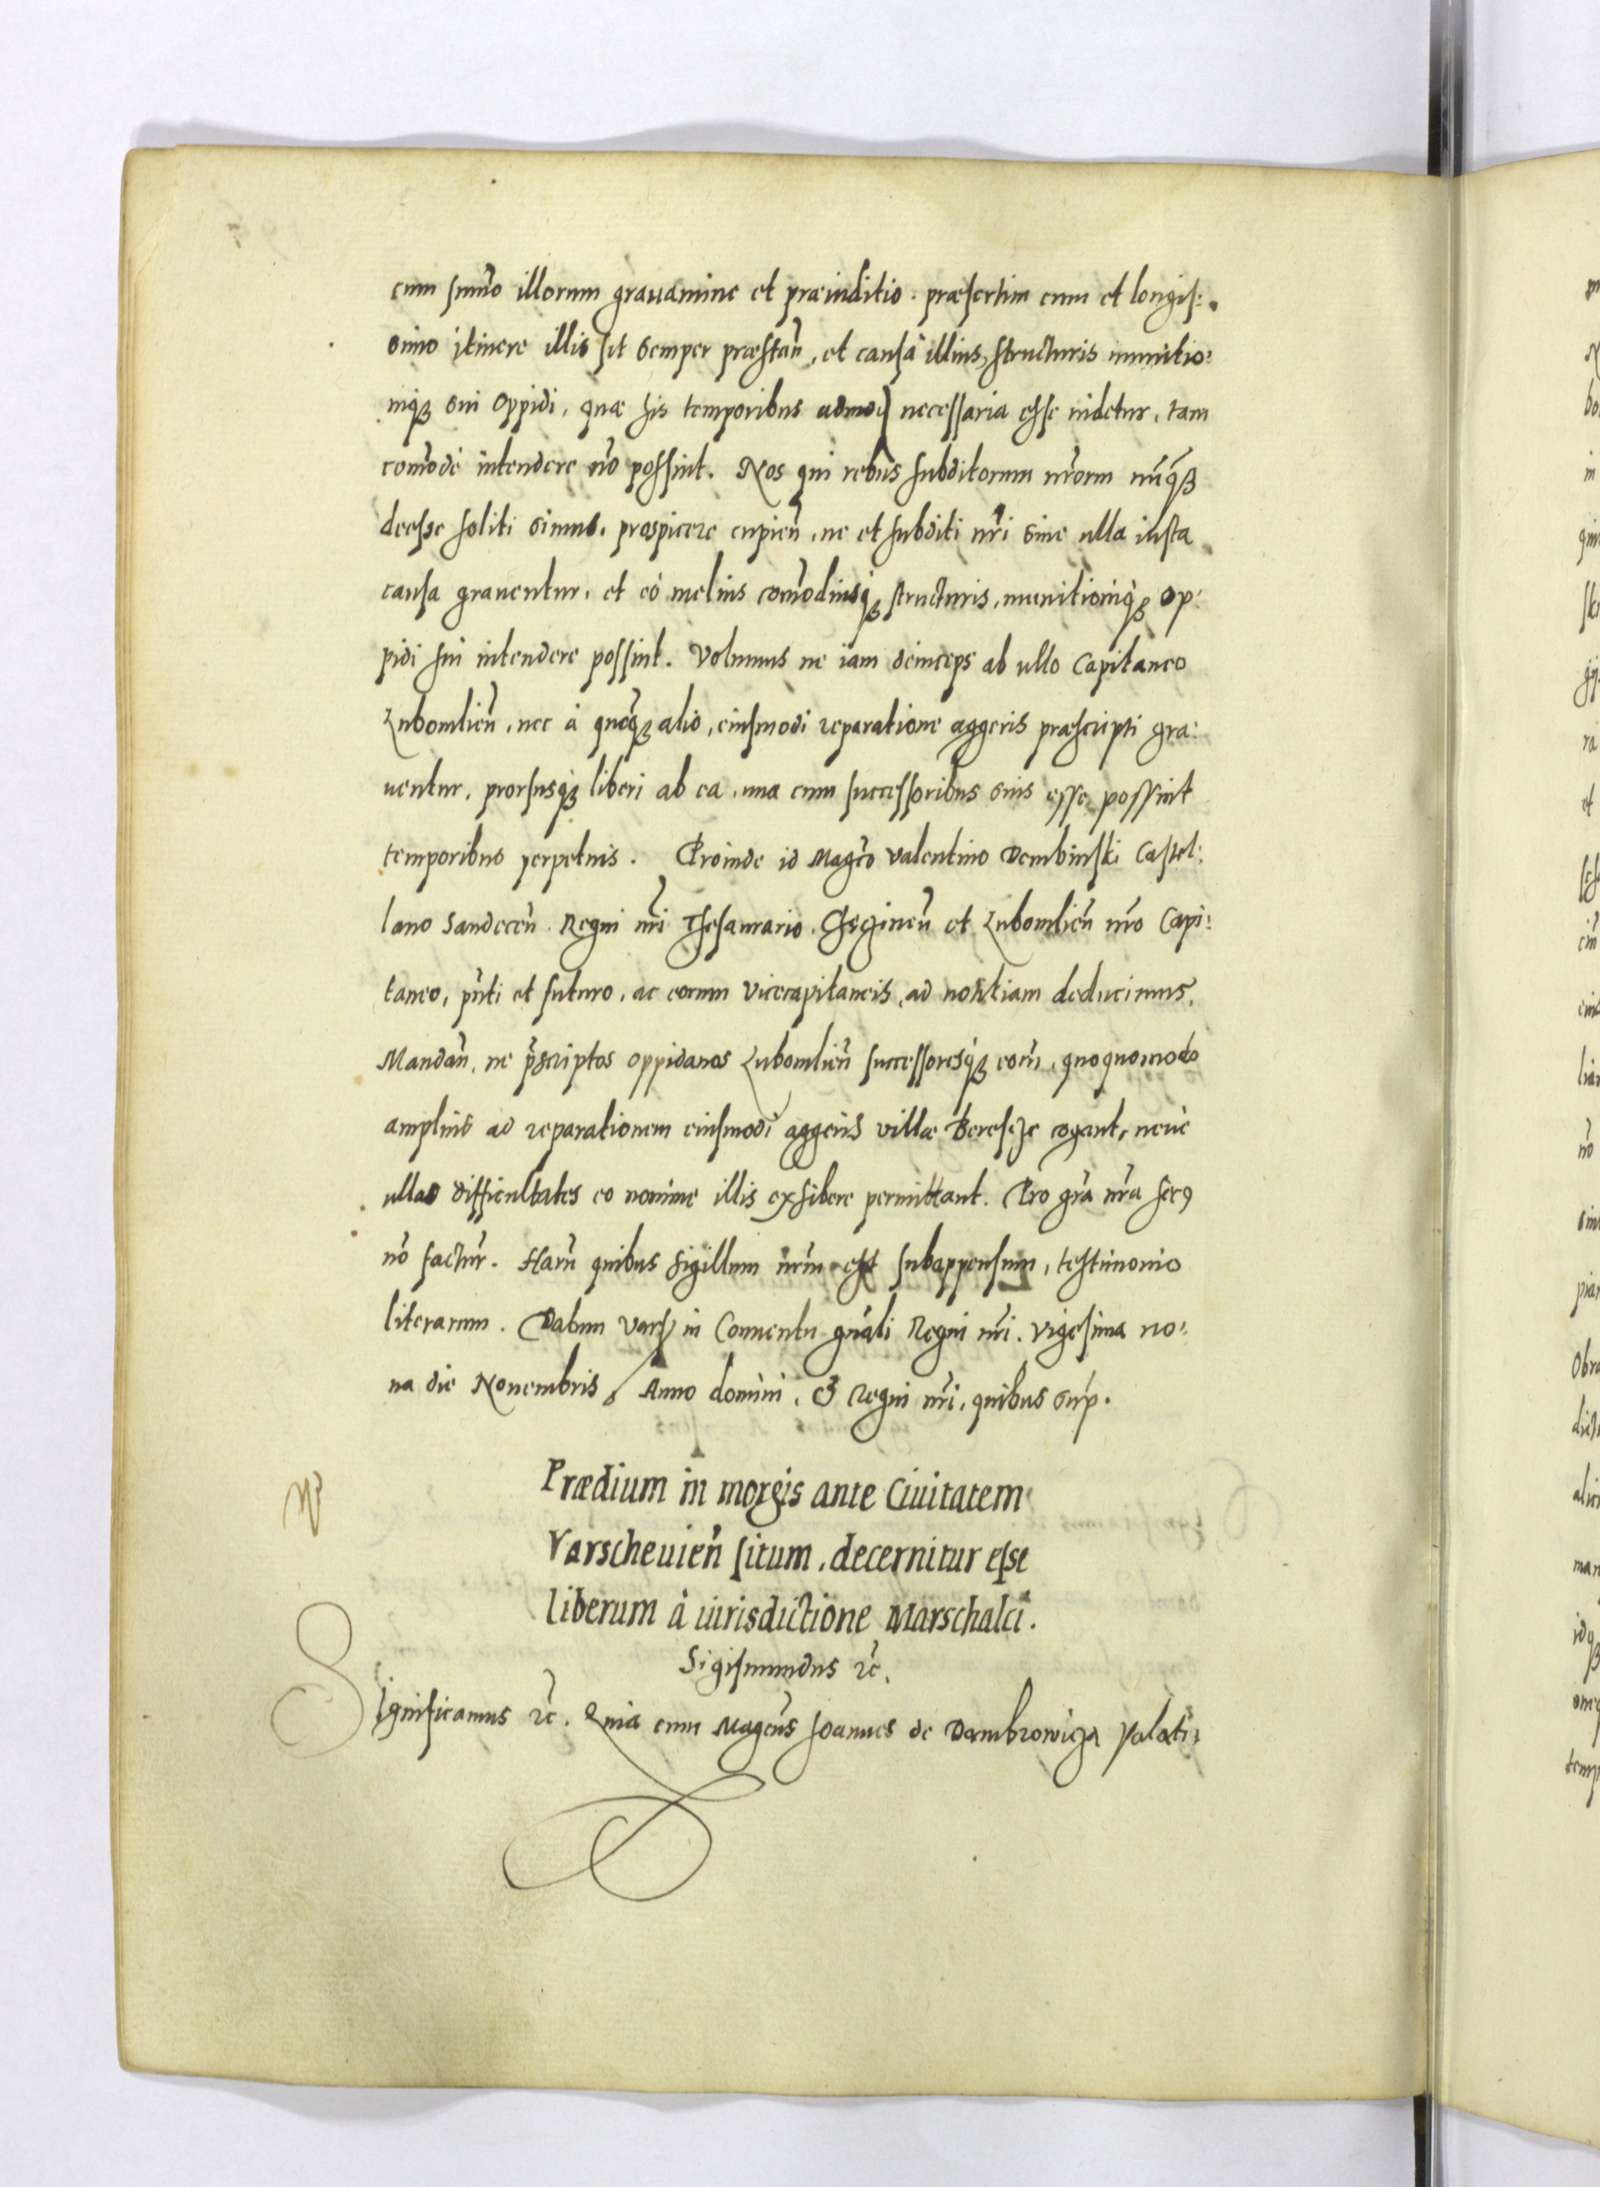 cum sum̃o illorum grauamine et præiuditio. præsertim cum et longis:
simo itinere illis sit semper præstañ, et causa illius, structuris munitio:
niq₃ sui oppidi, quæ his temporibus admod̃ necessaria esse uidetur, tam
com̃odè intendere nõ possint. Nos qui rebus subditorum nr̃orum nũq̃₃
deesse soliti simus, prospicere cupieñ, ne et subditi nr̃i sine ulla iusta
causa grauentur, et eò melius com̃odiusq₃ structuris, munitioniq₃ op:
pidi sui intendere possint. Volumus ne iam deinceps ab ullo Capitaneo
Lubomlieñ, nec à quoq₃ alio, eiusmodi reparatione aggeris præscripti gra:
uentur, prorsusq₃ liberi ab ea, una cum successoribus suis esse possint
temporibus perpetuis. Proinde id Magco Valentino Dembinski Castel:
lano Sandeceñ Regni nr̃i Thesaurario, Chęcineñ et Lubomlieñ nr̃o Capi:
taneo, pñti et futuro, ac eorum Vicecapitaneis, ad notitiam deducimus,
Mandañ, ne p̃scriptos oppidanos Lubomlieñ successoresq₃ eorũ, quoquomodo
amplius ad reparationem eiusmodi aggeris villæ Beresze cogant, neuè
ullas difficultates eo nomine illis exhibere permittant. Pro gr̃a nr̃a secꝰ
nõ factur̃. Harũ quibus sigillum nr̃um est subappensum, testimonio
literarum. Datum Vars in Conuentu gñali Regni nr̃i. Vigesima no:
na die Nouembris, Anno domini, & Regni nr̃i, quibus sup̃.
Prædium in morgis ante Ciuitatem
Varscheuieñ situm, decernitur esse
liberum à iurisdictione Marschalci.
Sigismundus ꝛc̃.
Significamus ꝛc̃. Quia cum Magcus Joannes de Dambrowicza Palati: